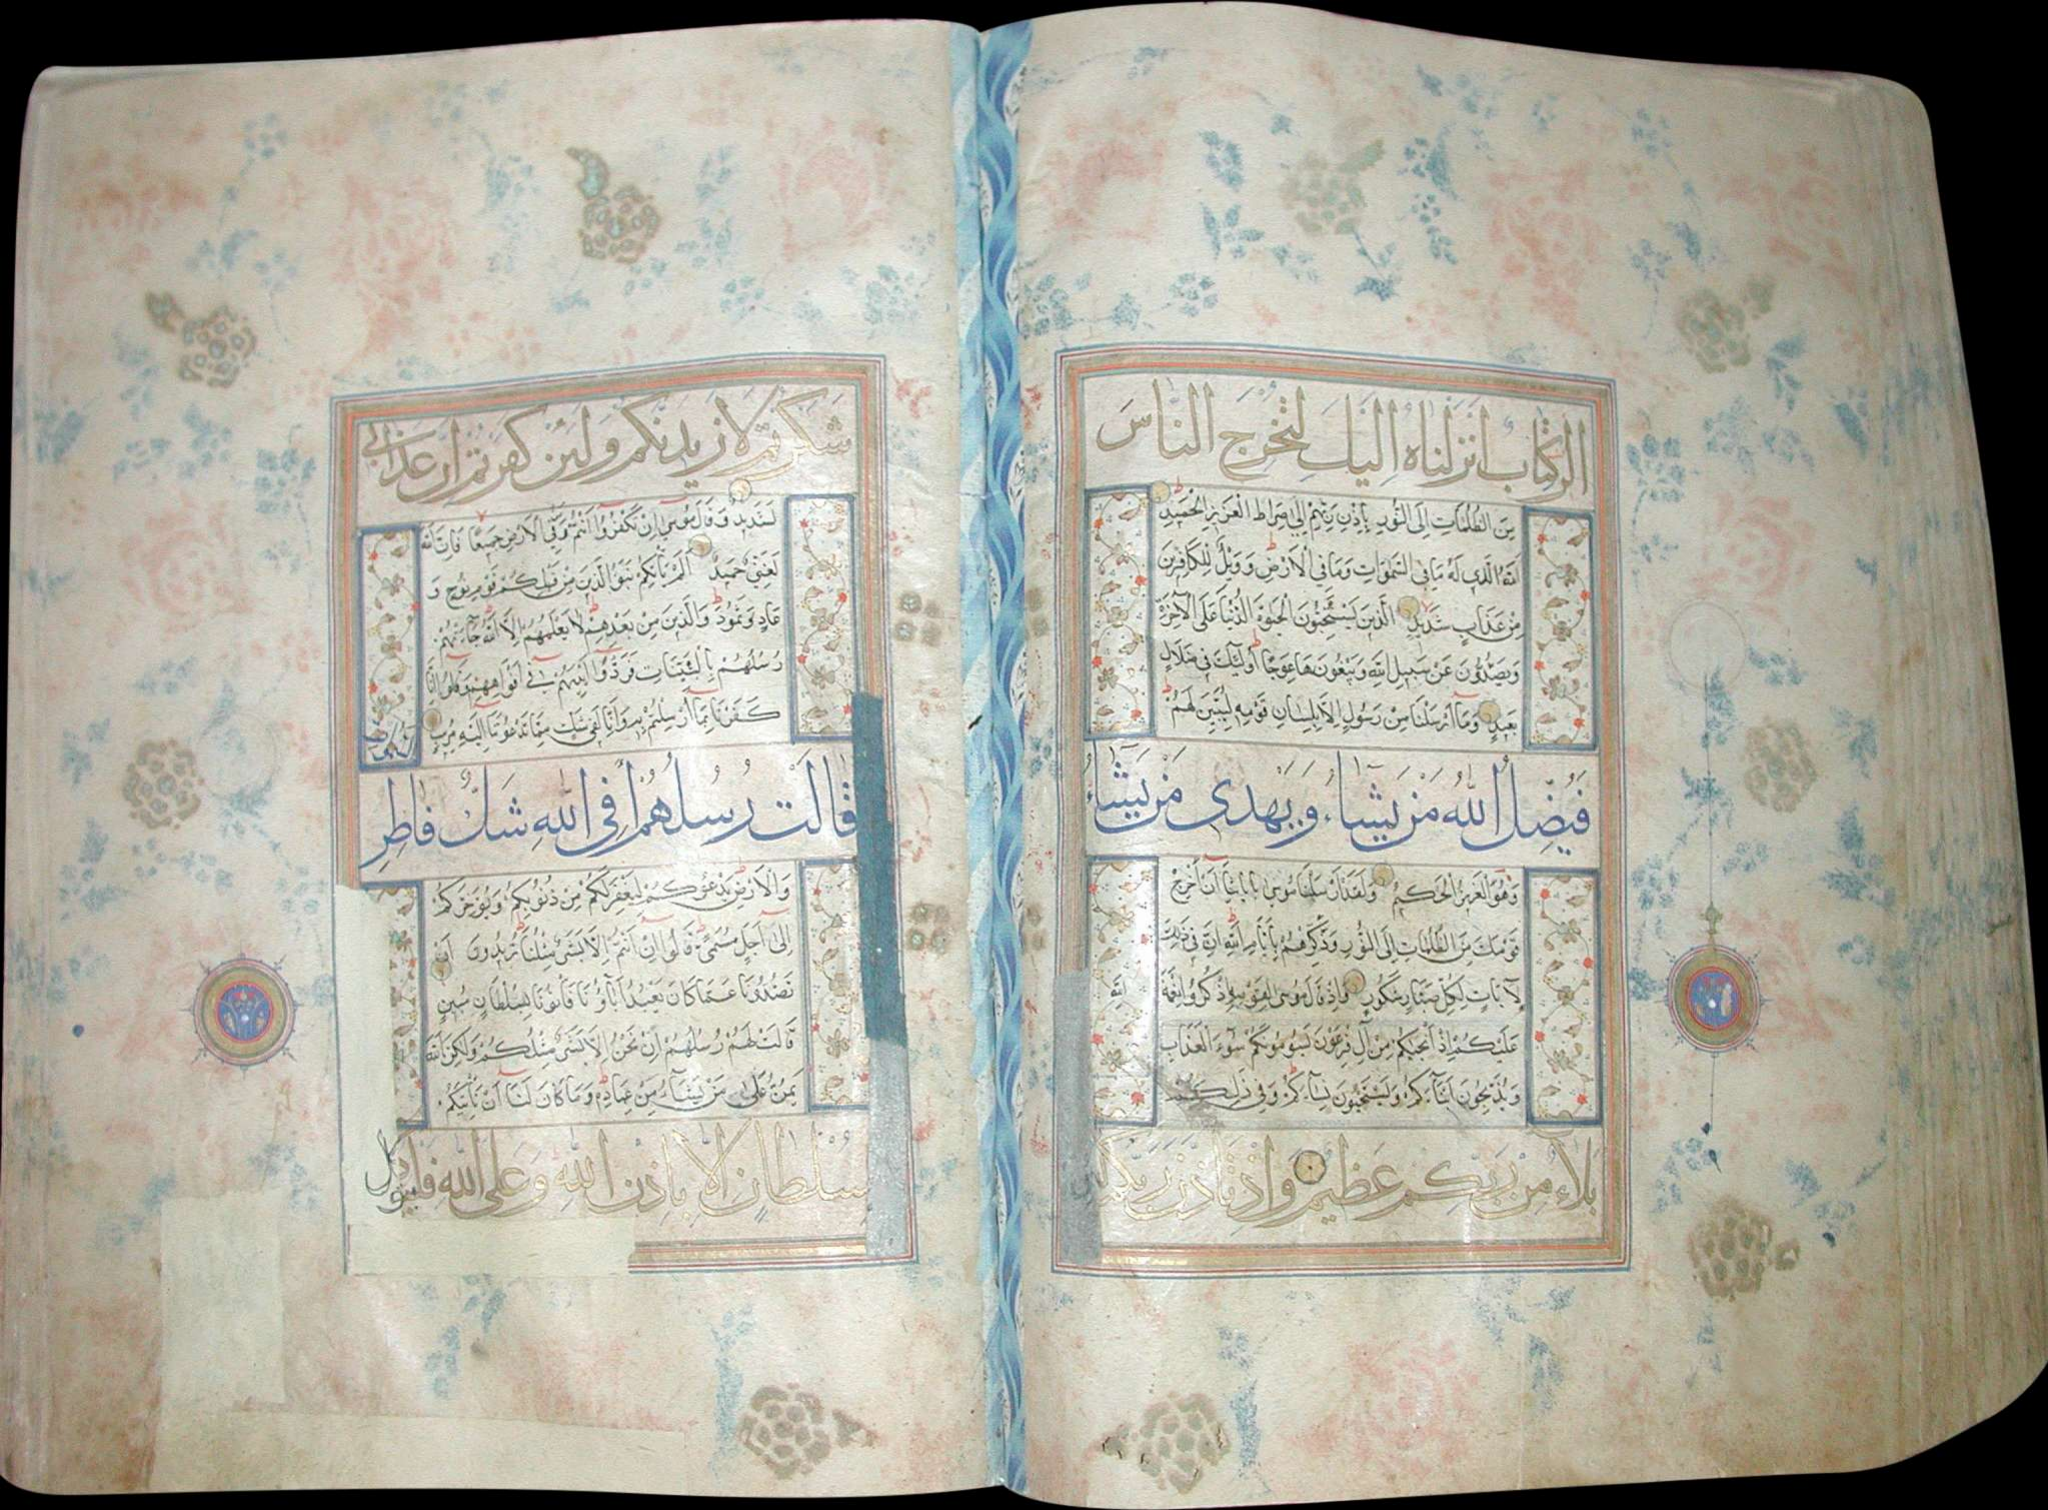 الر كتاب انزلناه اليك لتخرج الناس
من الظلمات الى النور باذن ربهم الى صراط العزيز الحميد
الله الذي له ما في السموات وما في الارض وويل للكافرين
من عذاب شديد الذين يستحبون الحيوة الدنيا على الآخرة
ويصدون عن سبيل الله ويبغونها عوجا اولئك في ضلال
بعيد وما ارسلنا من رسول الا بلسان قومه ليبين لهم
فيضل الله من يشاء ويهدى من يشاء
وهو العزيز الحكيم ولقد ارسلنا موسى باياتنا ان اخرج
قومك من الظلمات الى النور وذكرهم بايام الله ان في ذلك
لايات لكل صبار شكور واذ قال موسى لقومه اذكروا نعمة الله
عليكم اذ انجيكم من آل فرعون يسومونكم سوء العذاب
ويذبحون ابناءكم ويستحيون نساءكم وفي ذلكم
بلاء من ربكم عظيم واذ تاذن ربكم لئن
شكرتم لازيدنكم ولئن كفرتم ان عذابي
لشديد وقال موسى ان تكفروا انتم وفي الارض جميعا فان الله
لغني حميد الم ياتكم نبؤ الذين من قبلكم قوم نوح و
عاد وثمود والذين من بعدهم لا يعلمهم الا الله جاءتهم
رسلهم بالبينات فردوا ايديهم في افواههم وقالوا انا
كفرنا بما ارسلتم به وانا لفي شك مما تدعوننا اليه مريب
قالت رسلهم أفي الله شك فاطر
والارض يدعوكم ليغفر لكم من ذنوبكم ويؤخركم
الى اجل مسمى قالوا ان انتم الا بشر مثلنا تريدون ان
تصدونا عما كان يعبد آباؤنا فأتونا بسلطان مبين
قالت لهم رسلهم ان نحن الا بشر مثلكم ولكن الله
يمن على من يشاء من عباده وما كان لنا ان ناتيكم
بسلطان الا باذن الله وعلى الله فليتوكل